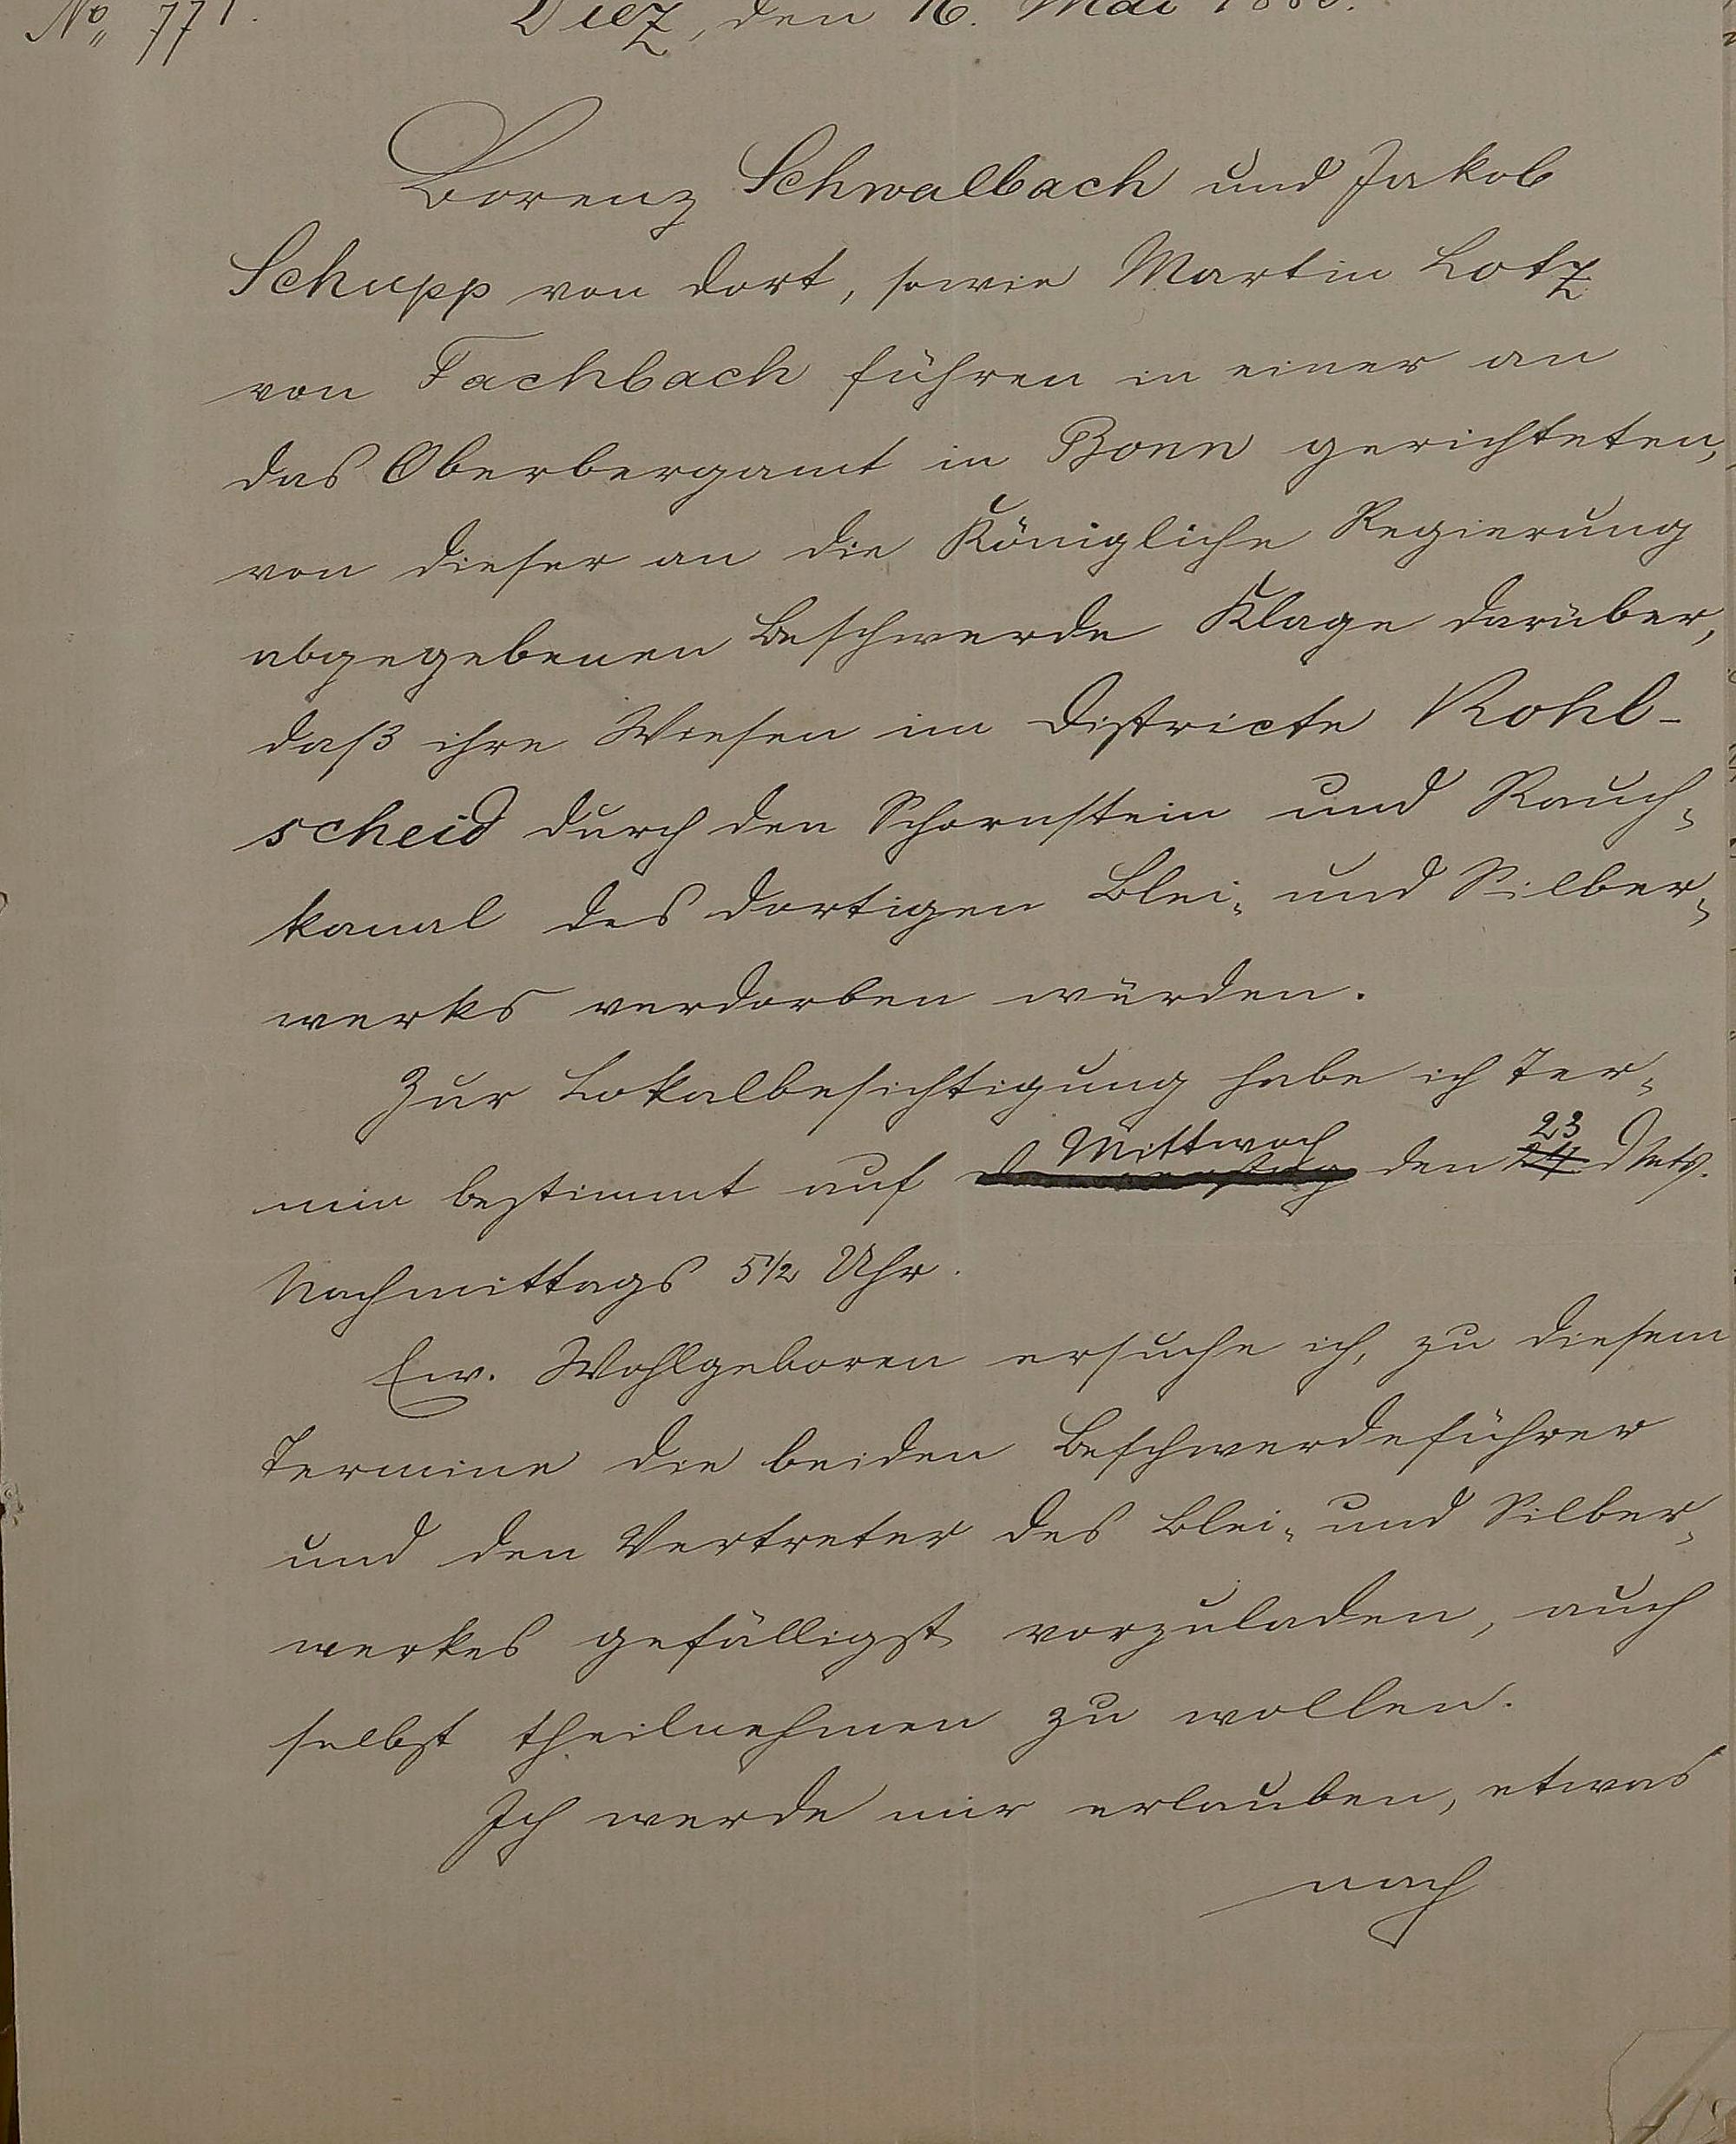 No 771.
Diez, den 16. Mai 188
Lorenz Schwalbach und Jakob
Schupp von dort, sowie Martin Lotz
von Fachbach führen in einer an
das Oberbergamt in Bonn gerichteten,
von dieser an die Königliche Regierung
abgegebenen Beschwerde Klage darüber,
daß ihre Wiesen im Districte Kohl-
scheid durch den Schornstein und Rauch-
kanal des dortigen Blei- und Silber-
werks verdorben würden.
Zur Lokalbesichtigung habe ich Ter-
min bestimmt auf Donnerstag Mittwoch den 24 23 d Mts.
Nachmittags 5 1/2 Uhr.
Ew. Wohlgeboren ersuche ich, zu diesem
Termine die beiden Beschwerdeführer
und den Vertreter des Blei- und Silber-
werkes gefälligst vorzuladen, auch
selbst theilnehmen zu wollen.
Ich werde mir erlauben, etwas
nach